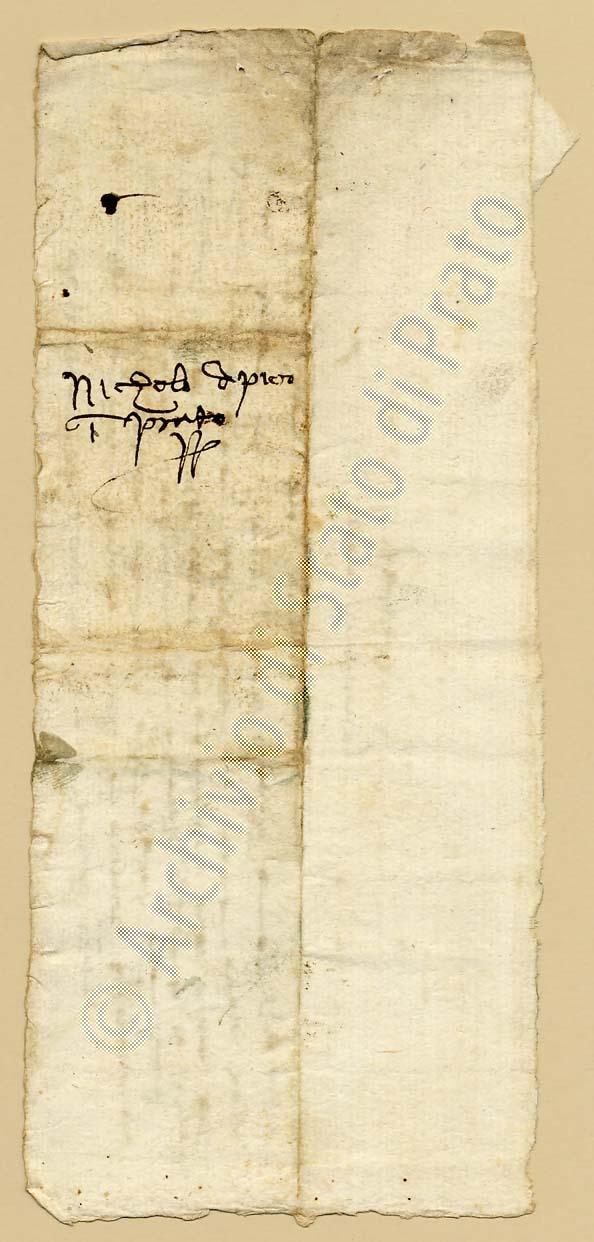 Nicholò di Piero
i Prato
© Archivio di Stato di Prato